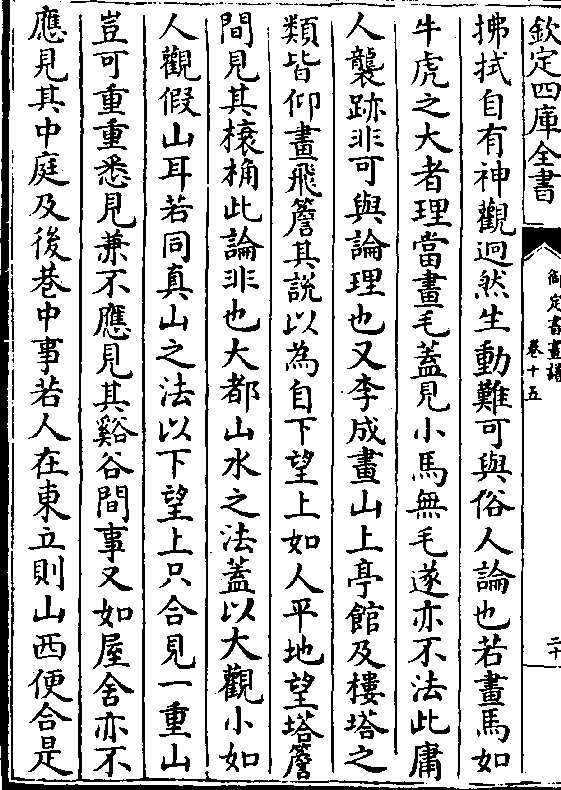 欽定四庫全書
御定書畫譜
卷十五
二十
拂拭自有神觀迥然生動難可與俗人論也若畫馬如
牛虎之大者理當畫毛蓋見小馬無毛遂亦不法此庸
人襲跡非可與論理也又李成畫山上亭館及樓塔之
類皆仰畫飛簷其說以為自下望上如人平地望塔簷
間見其榱桷此論非也大都山水之法蓋以大觀小如
人觀假山耳若同真山之法以下望上只合見一重山
豈可重重悉見兼不應見其谿谷間事又如屋舍亦不
應見其中庭及後巷中事若人在東立則山西便合是